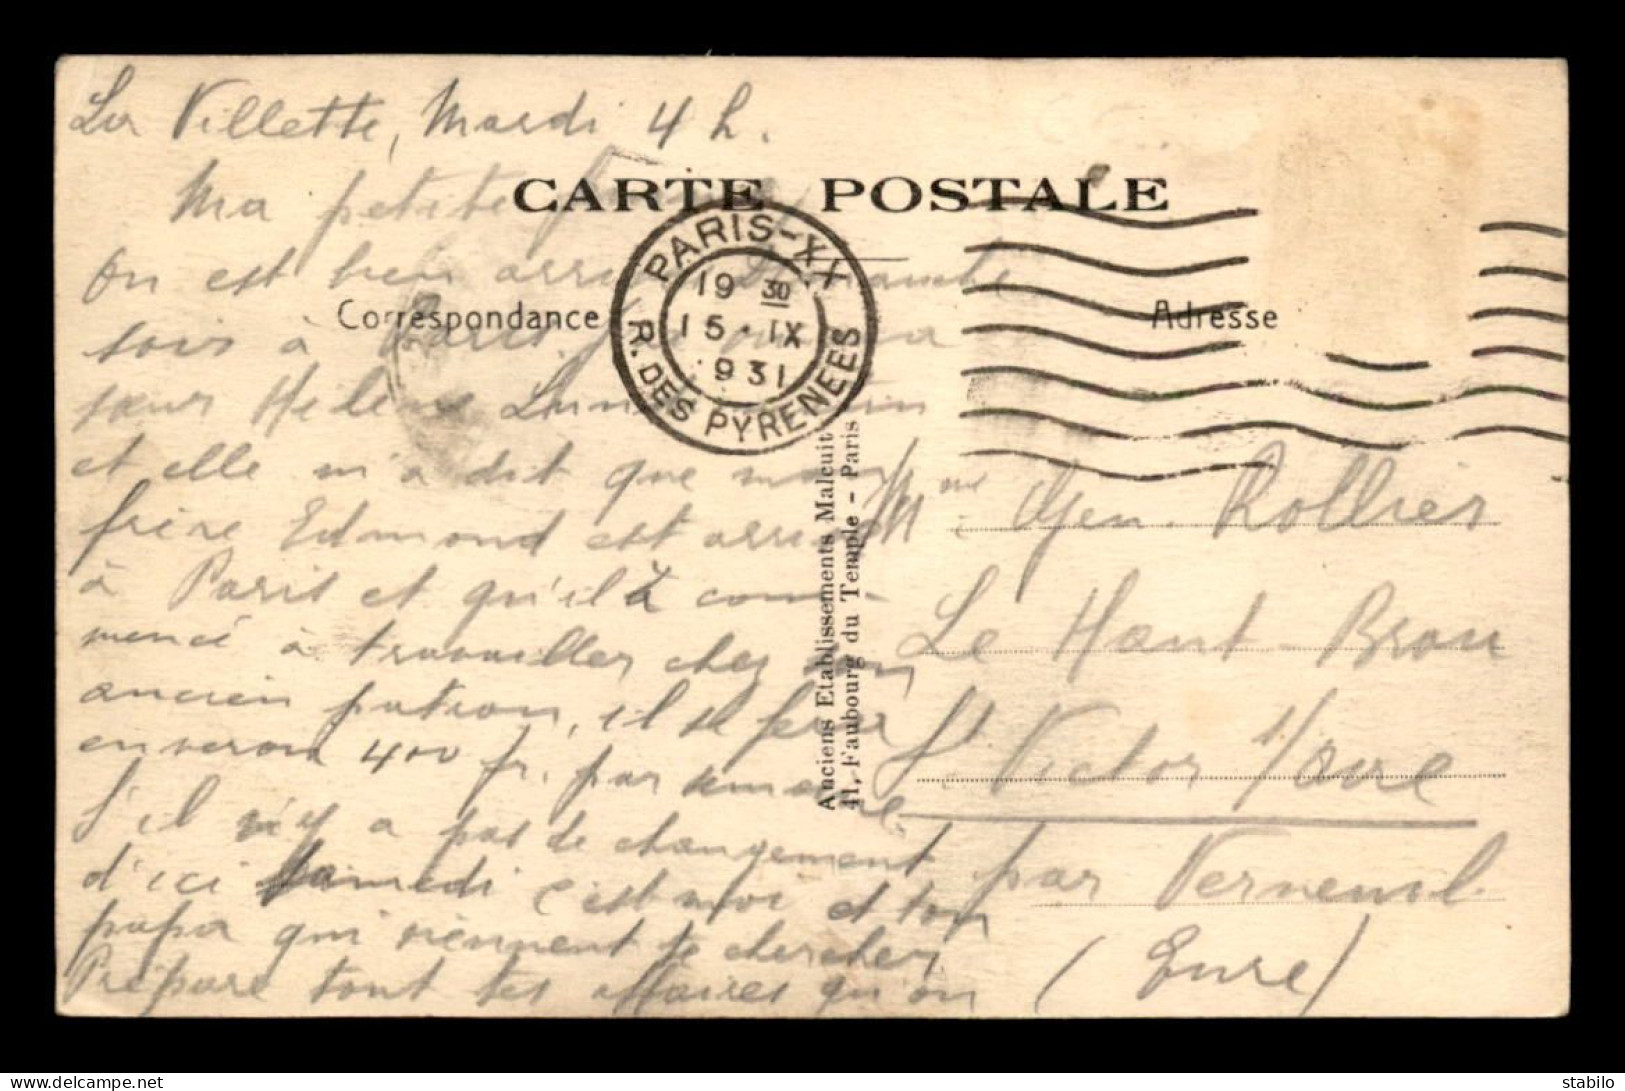 La Villette, Mardi 4 h.
CARTE POSTALE
Ma petite
On est bien
soir à Paris
Correspondance
sœur Hélène
et elle m'a dit que mon
frère Edmond est arrivé
à Paris et qu'il a com-
mencé à travailler chez son
ancien patron, il se fera
environ 400 fr. par semaine.
S'il n'y a pas de changement
d'ici Samedi c'est moi et ton
papa qui viennent te chercher.
Prépare tout tes affaires qu'on
PARIS-XX
19 30
15 · IX
931
R. DES PYRENEES
Anciens Etablissements Malcuit
41, Faubourg du Temple - Paris
Adresse
Mme Gen. Rollier
Le Haut-Brou
St Victor s/avre
par Verneuil
(Eure)